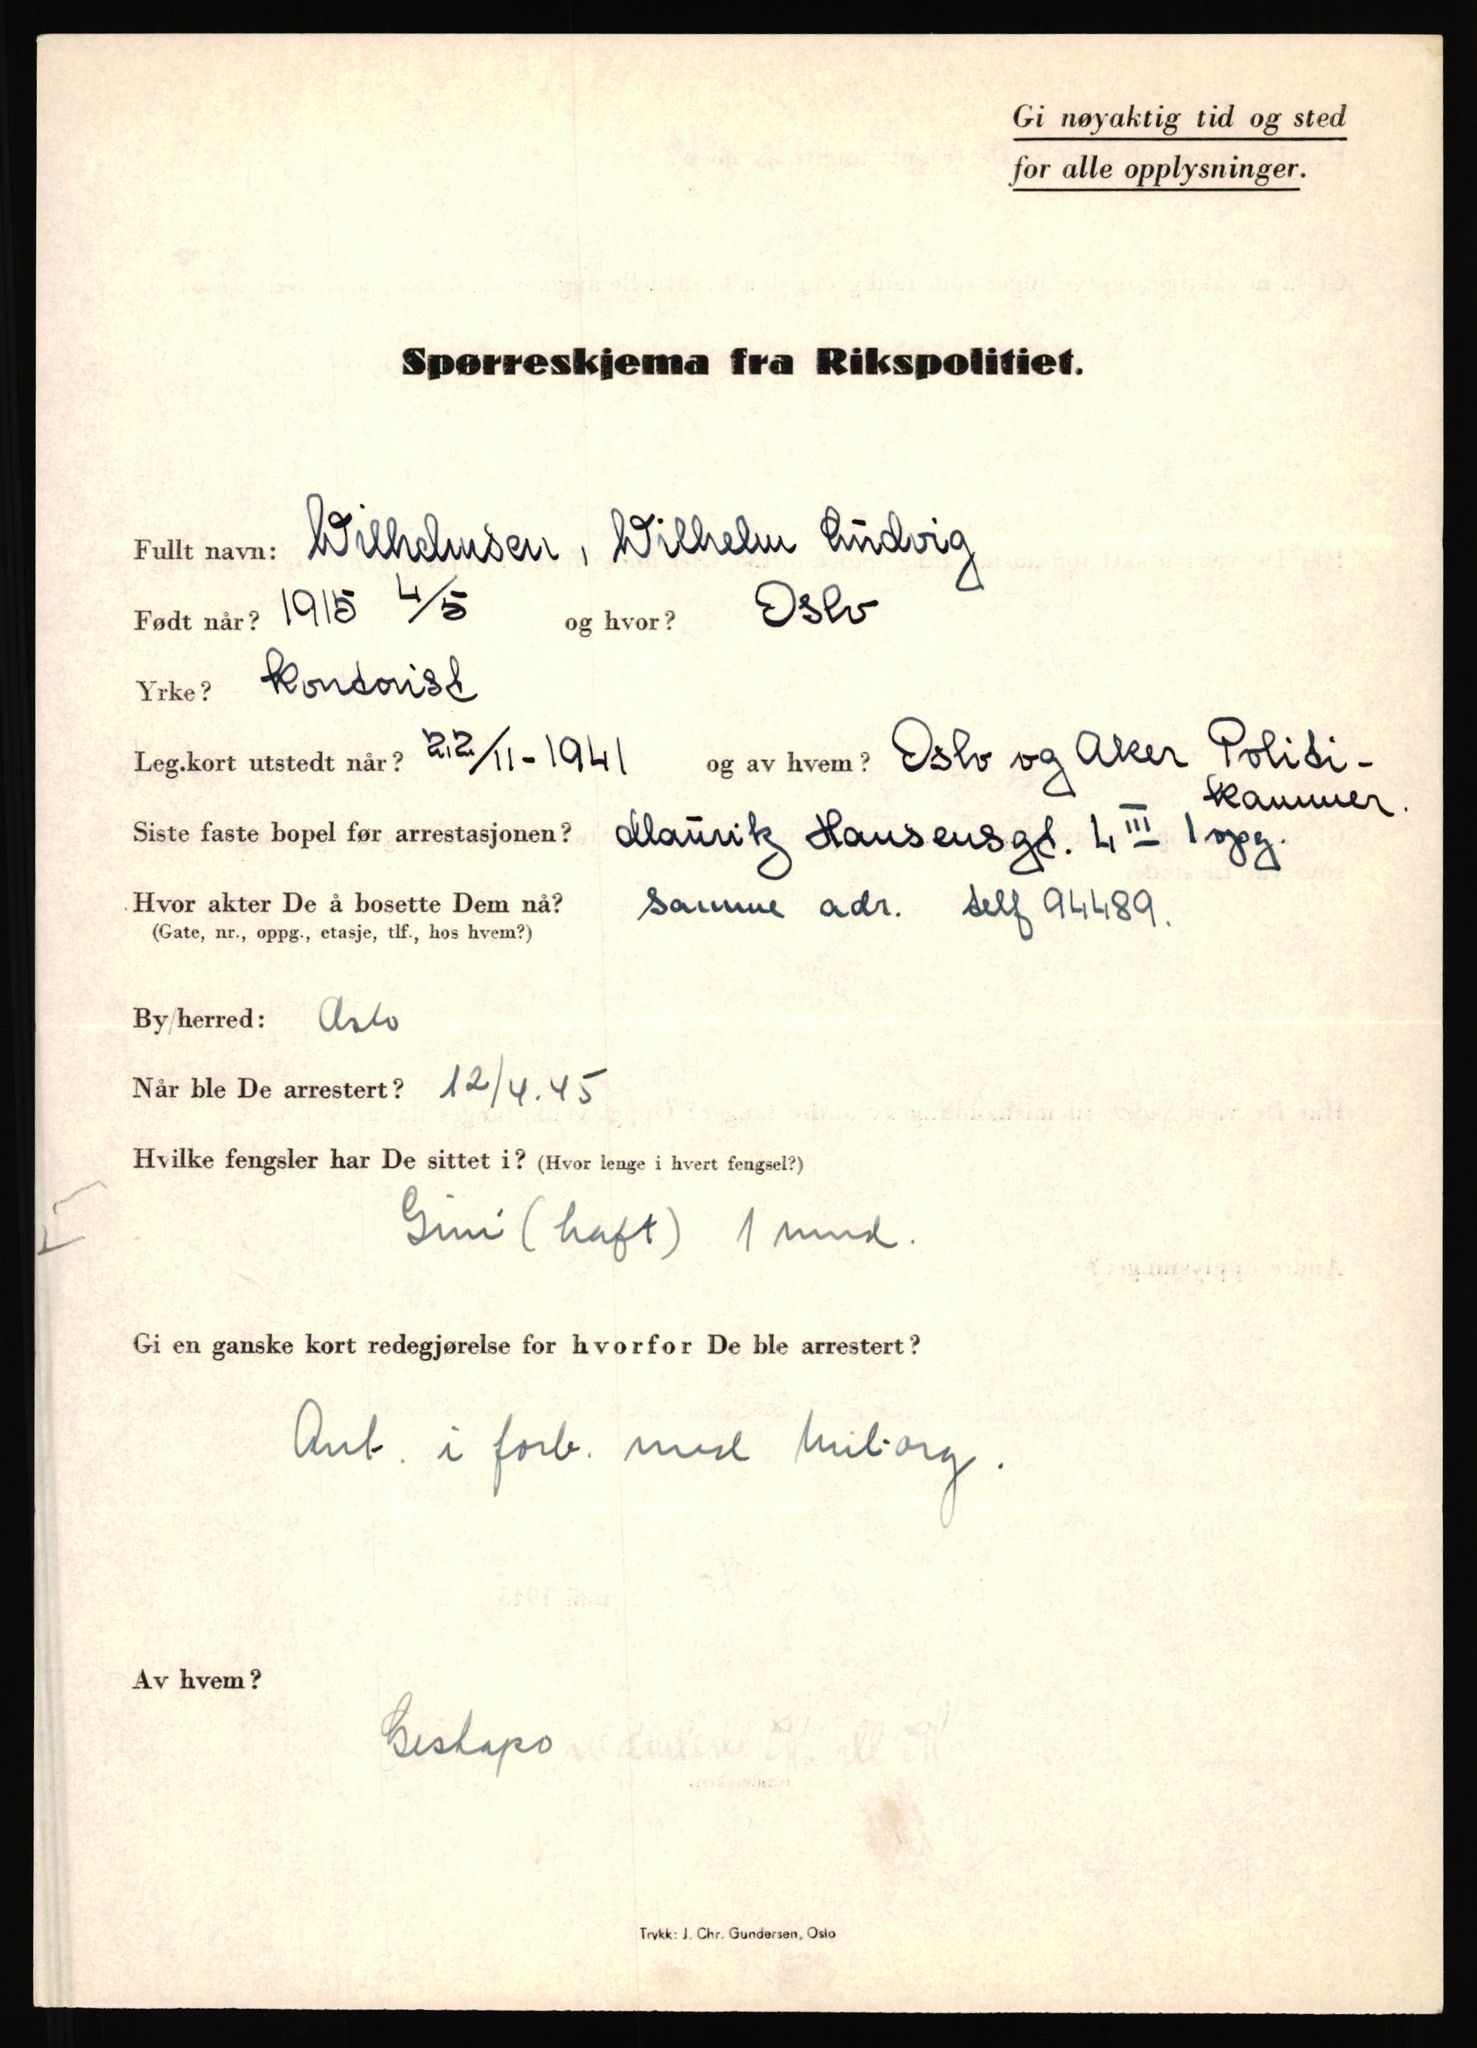 Gi nøyaktig tid og sted
for alle opplysninger.
Spørreskjema fra Rikspolitiet.
Fullt navn: Wilhelmsen, Wilhelm Ludvig
Født når? 1915 4/5 og hvor? Oslo
Yrke? Kontorist
Leg.kort utstedt når? 22/11-1941 og av hvem? Oslo og Aker Politi-
kammer.
Siste faste bopel før arrestasjonen? Mauritz Hansensgt. 4 III 1 opg.
Hvor akter De å bosette Dem nå? samme adr. telf 94489.
(Gate, nr., oppg., etasje, tlf., hos hvem?)
By/herred: Oslo
Når ble De arrestert? 12/4.45
Hvilke fengsler har De sittet i? (Hvor lenge i hvert fengsel?)
Grini (haft) 1 mnd.
Gi en ganske kort redegjørelse for hvorfor De ble arrestert?
i forb. med Mil.org.
Av hvem?
Gestapo
Trykk: J. Chr. Gundersen, Oslo